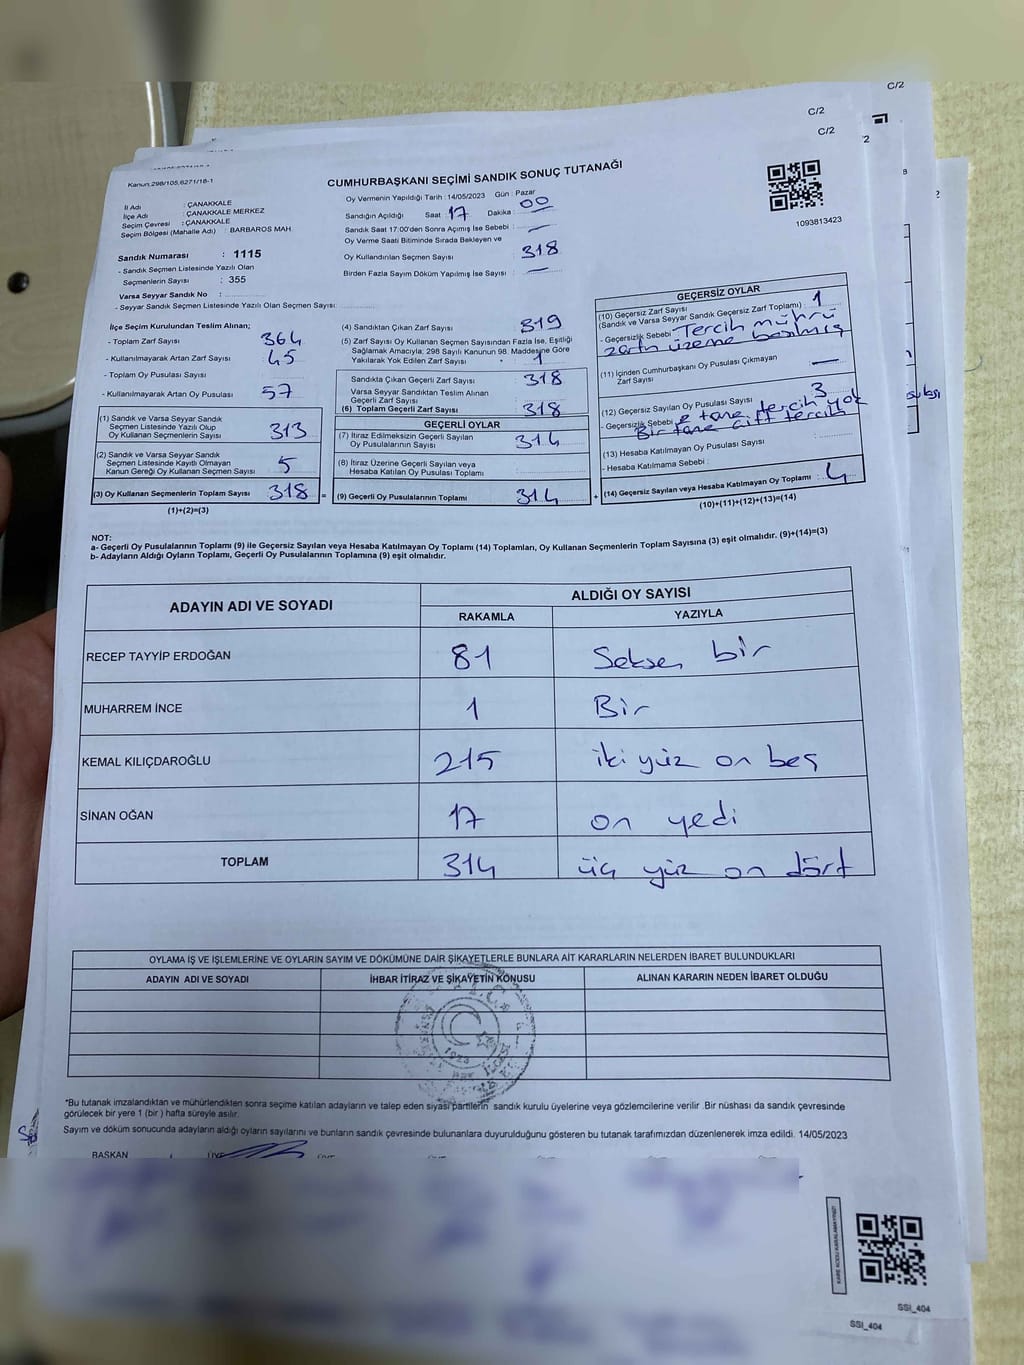 C/2
C/2
C/2
Kanun;298/105,6271/18-1
CUMHURBAŞKANI SEÇİMİ SANDIK SONUÇ TUTANAĞI
1093813423
İl Adı : ÇANAKKALE
İlçe Adı : ÇANAKKALE MERKEZ
Seçim Çevresi : ÇANAKKALE
Seçim Bölgesi (Mahalle Adı) : BARBAROS MAH
Sandık Numarası : 1115
- Sandık Seçmen Listesinde Yazılı Olan
Seçmenlerin Sayısı : 355
Varsa Seyyar Sandık No :
- Seyyar Sandık Seçmen Listesinde Yazılı Olan Seçmen Sayısı:
Oy Vermenin Yapıldığı Tarih : 14/05/2023 Gün : Pazar
Sandığın Açıldığı Saat : 17 Dakika : 00
Sandık Saat 17:00'den Sonra Açımış İse Sebebi : —
Oy Verme Saati Bitiminde Sırada Bekleyen ve
Oy Kullandırılan Seçmen Sayısı : 318
Birden Fazla Sayım Döküm Yapılmış İse Sayısı : —
İlçe Seçim Kurulundan Teslim Alınan;
- Toplam Zarf Sayısı : 364
- Kullanılmayarak Artan Zarf Sayısı : 45
- Toplam Oy Pusulası Sayısı :
- Kullanılmayarak Artan Oy Pusulası : 57
(1) Sandık ve Varsa Seyyar Sandık
Seçmen Listesinde Yazılı Olup
Oy Kullanan Seçmenlerin Sayısı : 313
(2) Sandık ve Varsa Seyyar Sandık
Seçmen Listesinde Kayıtlı Olmayan
Kanun Gereği Oy Kullanan Seçmen Sayısı : 5
(3) Oy Kullanan Seçmenlerin Toplam Sayısı : 318 =
(1)+(2)=(3)
(4) Sandıktan Çıkan Zarf Sayısı : 319
(5) Zarf Sayısı Oy Kullanan Seçmen Sayısından Fazla İse, Eşitliği
Sağlamak Amacıyla, 298 Sayılı Kanunun 98. Maddesine Göre
Yakılarak Yok Edilen Zarf Sayısı : 1
Sandıkta Çıkan Geçerli Zarf Sayısı : 318
Varsa Seyyar Sandıktan Teslim Alınan
Geçerli Zarf Sayısı :
(6) Toplam Geçerli Zarf Sayısı : 318
GEÇERLİ OYLAR
(7) İtiraz Edilmeksizin Geçerli Sayılan
Oy Pusulalarının Sayısı : 314
(8) İtiraz Üzerine Geçerli Sayılan veya
Hesaba Katılan Oy Pusulası Toplamı :
(9) Geçerli Oy Pusulalarının Toplamı : 314 +
GEÇERSİZ OYLAR
(10) Geçersiz Zarf Sayısı
(Sandık ve Varsa Seyyar Sandık Geçersiz Zarf Toplamı) : 1
- Geçersizlik Sebebi : Tercih mührü
zarfın üzerine basılmış
(11) İçinden Cumhurbaşkanı Oy Pusulası Çıkmayan
Zarf Sayısı : —
(12) Geçersiz Sayılan Oy Pusulası Sayısı : 3
- Geçersizlik Sebebi : tane tercih yok
Bir tane çift tercih
(13) Hesaba Katılmayan Oy Pusulası Sayısı :
- Hesaba Katılmama Sebebi :
(14) Geçersiz Sayılan veya Hesaba Katılmayan Oy Toplamı : 4
(10)+(11)+(12)+(13)=(14)
NOT:
a- Geçerli Oy Pusulalarının Toplamı (9) ile Geçersiz Sayılan veya Hesaba Katılmayan Oy Toplamı (14) Toplamları, Oy Kullanan Seçmenlerin Toplam Sayısına (3) eşit olmalıdır. (9)+(14)=(3)
b- Adayların Aldığı Oyların Toplamı, Geçerli Oy Pusulalarının Toplamına (9) eşit olmalıdır.
ADAYIN ADI VE SOYADI
ALDIĞI OY SAYISI
RAKAMLA YAZIYLA
RECEP TAYYİP ERDOĞAN 81 Seksen bir
MUHARREM İNCE 1 Bir
KEMAL KILIÇDAROĞLU 215 iki yüz on beş
SİNAN OĞAN 17 on yedi
TOPLAM 314 üç yüz on dört
OYLAMA İŞ VE İŞLEMLERİNE VE OYLARIN SAYIM VE DÖKÜMÜNE DAİR ŞİKAYETLERLE BUNLARA AİT KARARLARIN NELERDEN İBARET BULUNDUKLARI
ADAYIN ADI VE SOYADI İHBAR İTİRAZ VE ŞİKAYETİN KONUSU ALINAN KARARIN NEDEN İBARET OLDUĞU
1923
*Bu tutanak imzalandıktan ve mühürlendikten sonra seçime katılan adayların ve talep eden siyasi partilerin sandık kurulu üyelerine veya gözlemcilerine verilir .Bir nüshası da sandık çevresinde
görülecek bir yere 1 (bir ) hafta süreyle asılır.
Sayım ve döküm sonucunda adayların aldığı oyların sayılarını ve bunların sandık çevresinde bulunanlara duyurulduğunu gösteren bu tutanak tarafımızdan düzenlenerek imza edildi. 14/05/2023
BAŞKAN ÜYE
KARE KODU KARALAMAYINIZ!
SSI_404
SSI_404